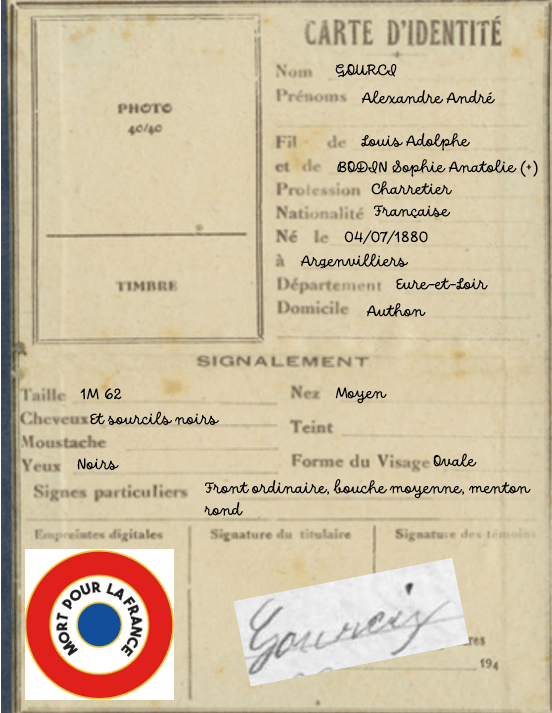 CARTE D'IDENTITÉ
PHOTO
40/40
TIMBRE
Nom GOURCI
Prénoms Alexandre André
Fil de Louis Adolphe
et de BODIN Sophie Anatolie (+)
Profession Charretier
Nationalité Française
Né le 04/07/1880
à Argenvilliers
Département Eure-et-Loir
Domicile Authon
SIGNALEMENT
Taille 1M 62
Cheveux Et sourcils noirs
Moustache
Yeux Noirs
Nez Moyen
Teint
Forme du Visage Ovale
Signes particuliers Front ordinaire, bouche moyenne, menton
rond
Empreintes digitales
Signature du titulaire
Signature des témoins
MORT POUR LA FRANCE
Gourcix
res
194